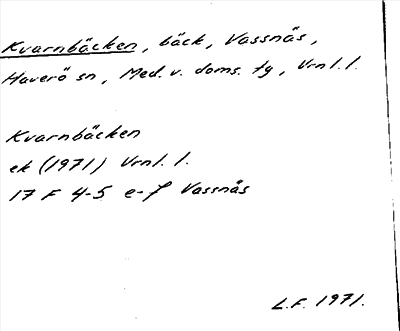 Kvarnbäcken, bäck, Vassnäs,
Haverö sn, Med. v. doms. tg, Vrnl. l.
Kvarnbäcken
ek (1971) Vrnl. l.
17 F 4-5 e-f Vassnäs
L.F. 1971.